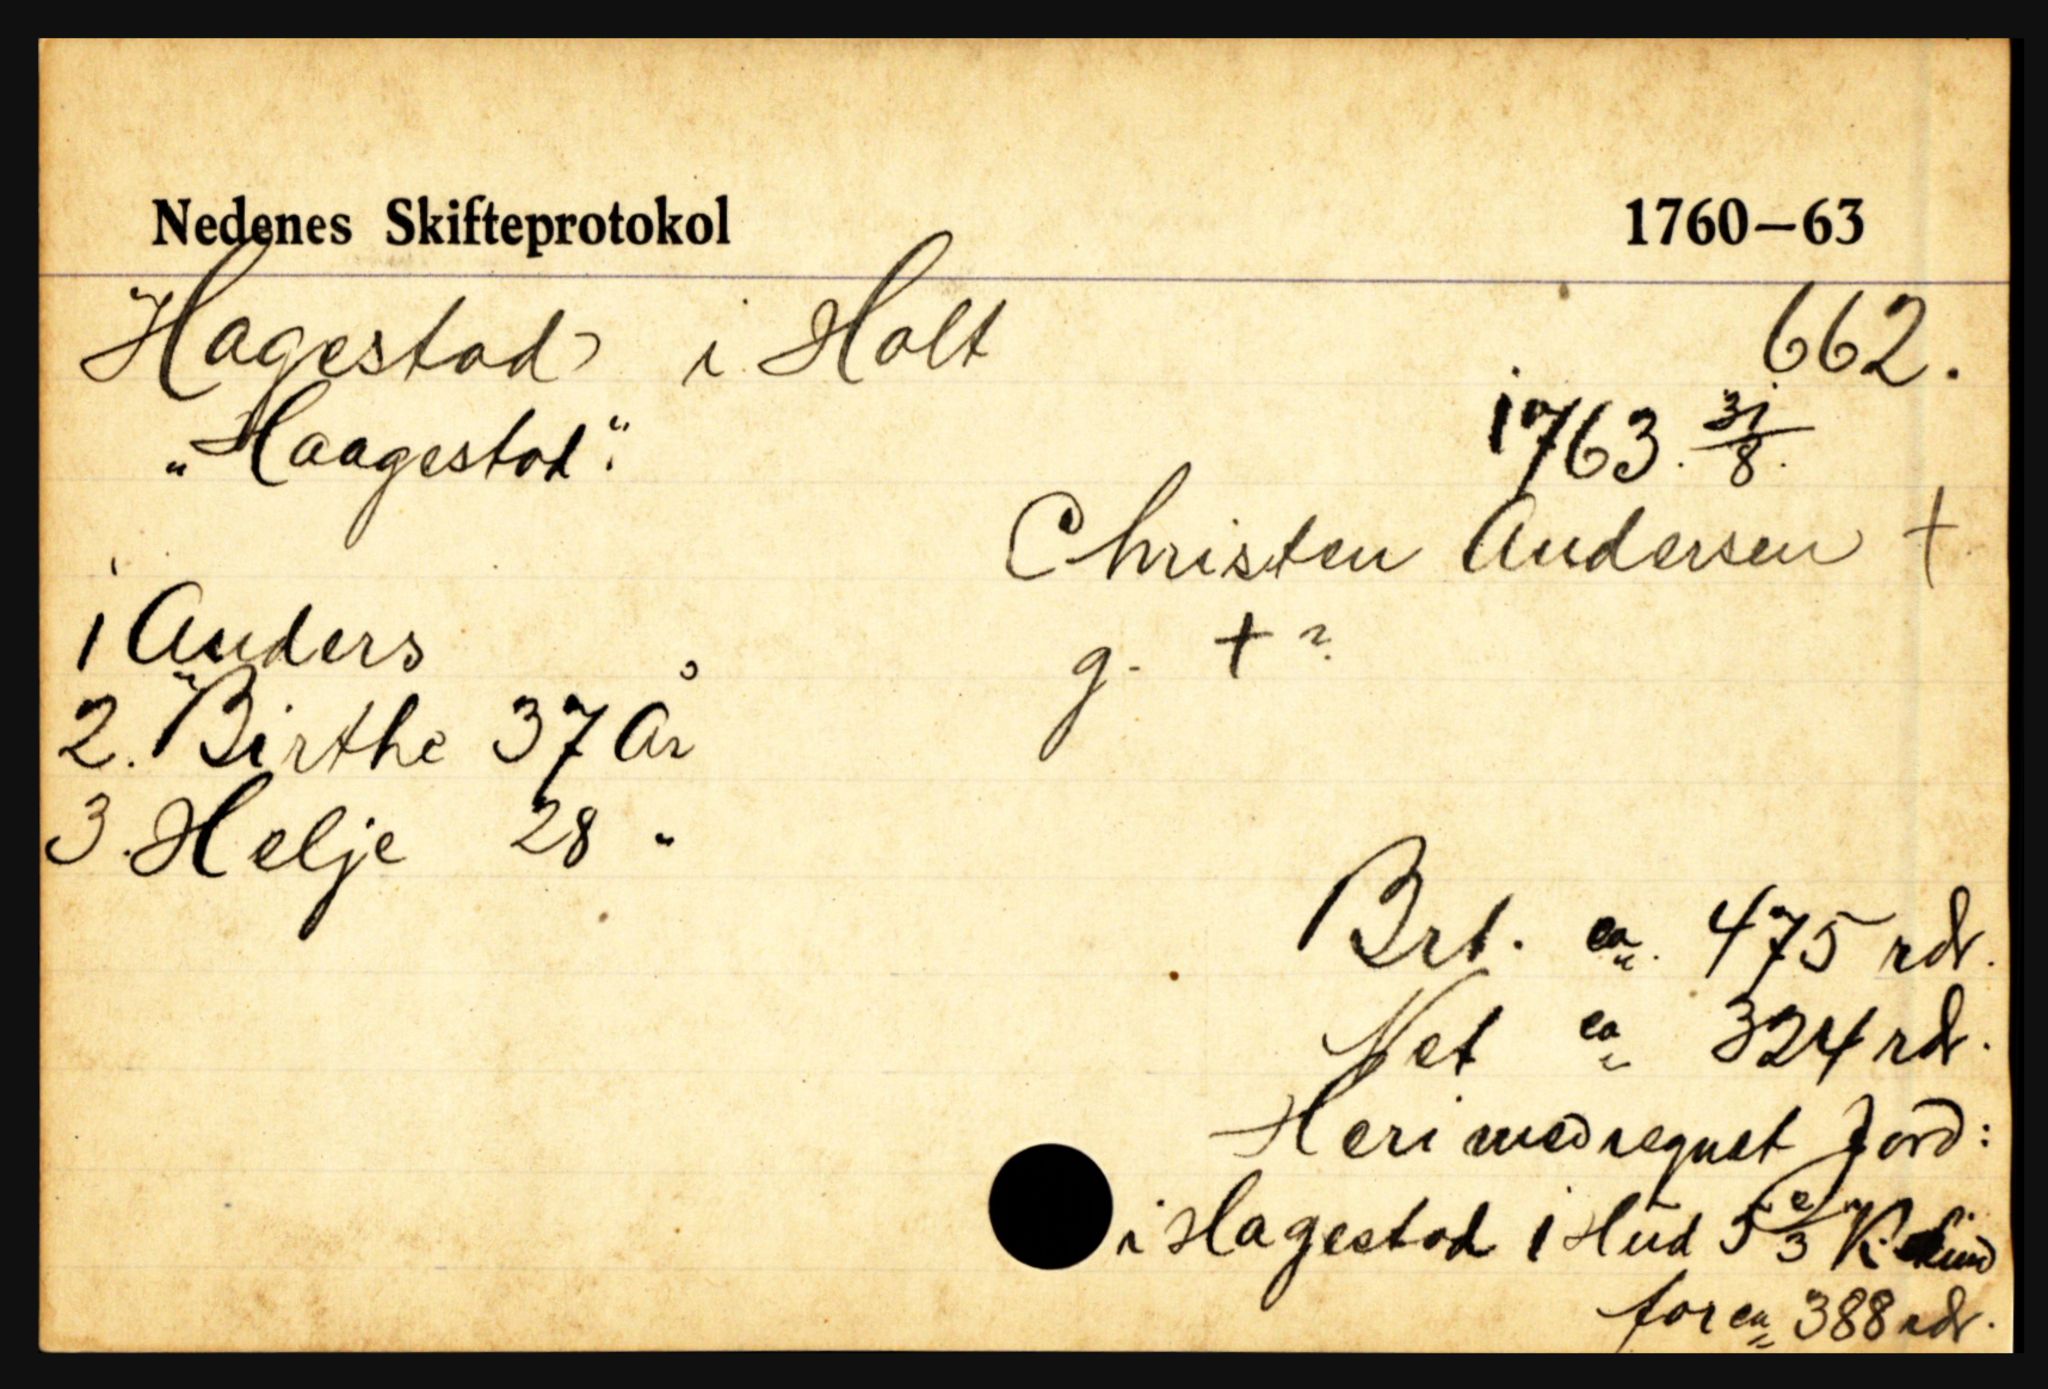 Nedenes Skifteprotokol 1760–63
Hagestad i Holt 662.
„Haagestad“. 1763. 31/8.
Christen Andersen †
1 Anders g. † ?
2. Birthe 37 År
3. Helje 28 "
Brt. ca. 475 rdr.
Net ca 324 rdr.
Heri medregnet Jord:
i Hagestad 1 Hud 5 2/3 K.skind
for ca 388 rdr.